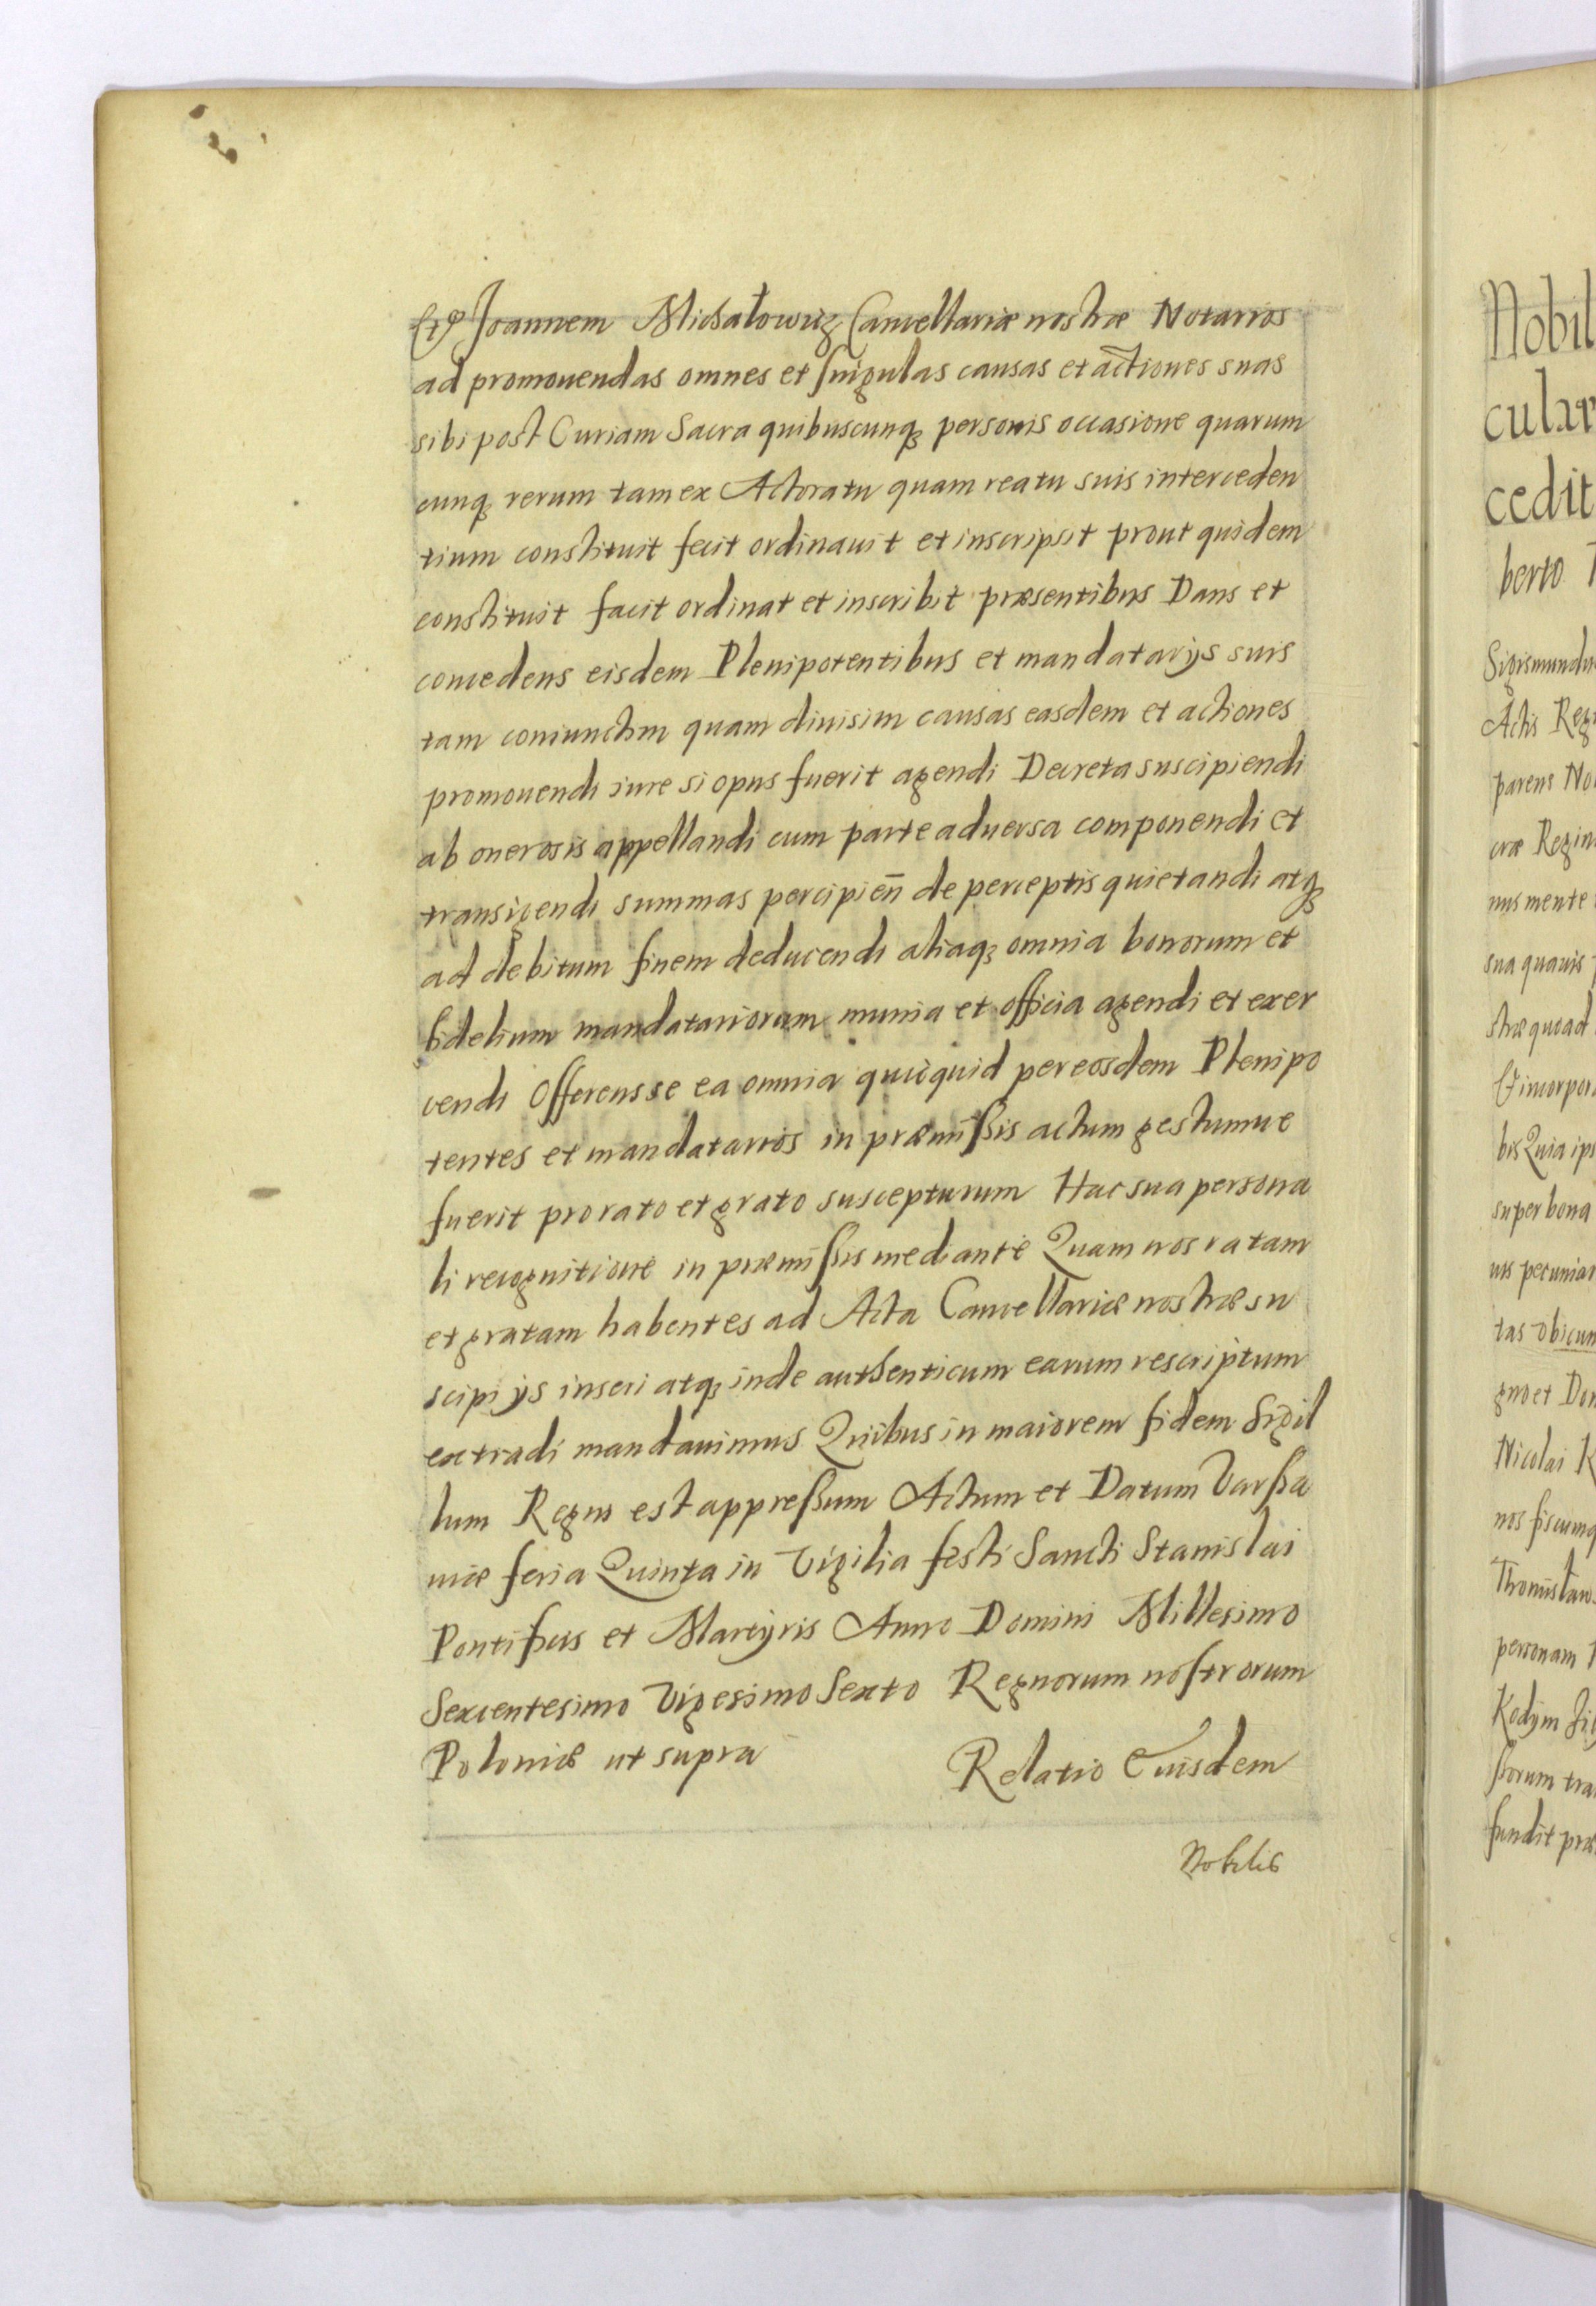 Et Joannem Michałowicz Cancellariæ nostræ Notarios
ad promouendas omnes et singulas causas et actiones suas
sibi post Curiam Sacra quibuscunq₃ personis occasione quarum
cunq₃ rerum tam ex Actoratu quam reatu suis interceden
tium constituit fecit ordinauit et inscripsit prout quidem
constituit facit ordinat et inscribit præsentibus Dans et
concedens eisdem Plenipotentibus et mandatarijs suis
tam coniunctim quam diuisim causas easdem et actiones
promouendi iure si opus fuerit agendi Decreta suscipiendi
ab onerosis appellandi cum parte aduersa componendi et
transigendi summas percipień de perceptis quietandi atq₃
ad debitum finem deducendi aliaq₃ omnia bonorum et
fidelium mandatariorum munia et officia agendi et exer
cendi Offerens se ea omnia quicquid per eosdem Plenipo
tentes et mandatarios in præmissis actum gestumue
fuerit pro rato et grato suscepturum Hac sua persona
li recognitione in præmissis mediante Quam nos ratam
et gratam habentes ad Acta Cancellariæ nostræ su
scipi ijs inseri atq₃ inde authenticum earum rescriptum
extradi mandauimus Quibus in maiorem fidem Sigil
lum Regni est appressum Actum et Datum Varssa
uiæ feria Quinta in Vigilia festi Sancti Stanislai
Pontificis et Martyris Anno Domini Millesimo
Sexcentesimo Vigesimo Sexto Regnorum nostrorum
Poloniæ ut supra Relatio Eiusdem
Nobilis
Nobil
cular
cedit
berto
Sigismundu
Actis Reg
parens No
cræ Regin
nus mente
sua quauis
stræ quoad
Et incorpor
bis Quia ips
super bona
uis pecuniar
tas Vbicun
gno et Dom
Nicolai K
nos fiscumq
Thomisław
personam
Kodÿm
ssorum tra
fundit præ